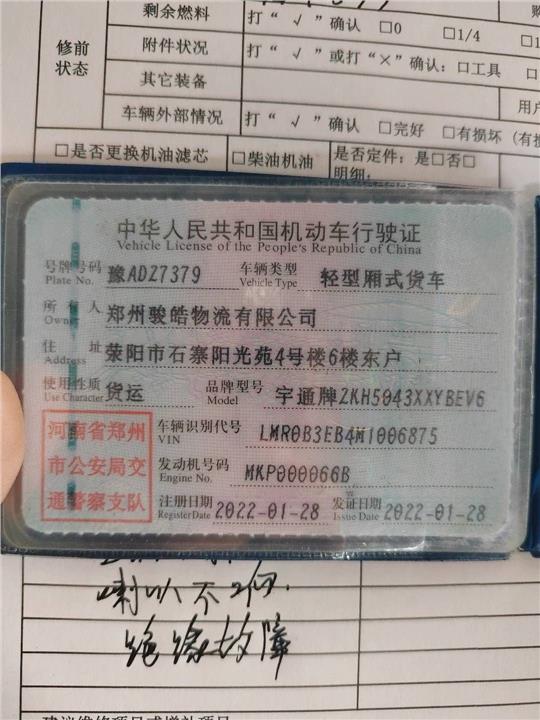 剩余燃料 打“√”确认 □0 □1/4
修前状态
附件状况 打“√”或打“×”确认：□工具
其它装备
车辆外部情况 打“√”确认 □完好 □有损坏
□是否更换机油滤芯 □柴油机油 是否定件：是□否□
明细：
中华人民共和国机动车行驶证
Vehicle License of the People's Republic of China
号牌号码 豫ADZ7379 车辆类型 轻型厢式货车
Plate No. Vehicle Type
所有人 郑州骏皓物流有限公司
Owner
住址 荥阳市石寨阳光苑4号楼6楼东户
Address
使用性质 货运 品牌型号 宇通牌ZKH5043XXYBEV6
Use Character Model
河南省郑州
市公安局交
通警察支队
车辆识别代号 LMR0B3EB4M1006875
VIN
发动机号码 MKP000066B
Engine No.
注册日期 2022-01-28 发证日期 2022-01-28
Register Date Issue Date
喇叭不响.
绝缘故障
建议维修项目或增补项目